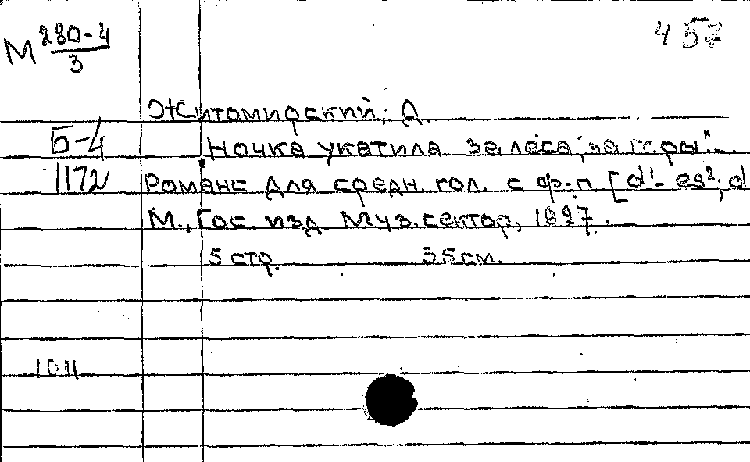 М 280-4
3
457
Житомирский, А.
Б-4
1172
"Ночка укатила за леса, за горы".
Романс для средн. гол. с ф.-п. [d¹- es², d
М., Гос. изд. Муз. сектор, 1927.
5 стр. 35 см.
1011